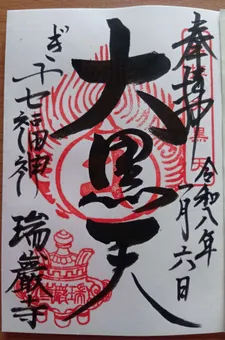 奉拝
令和八年
月六日
大黒天
ぎふ七福神
瑞巌寺